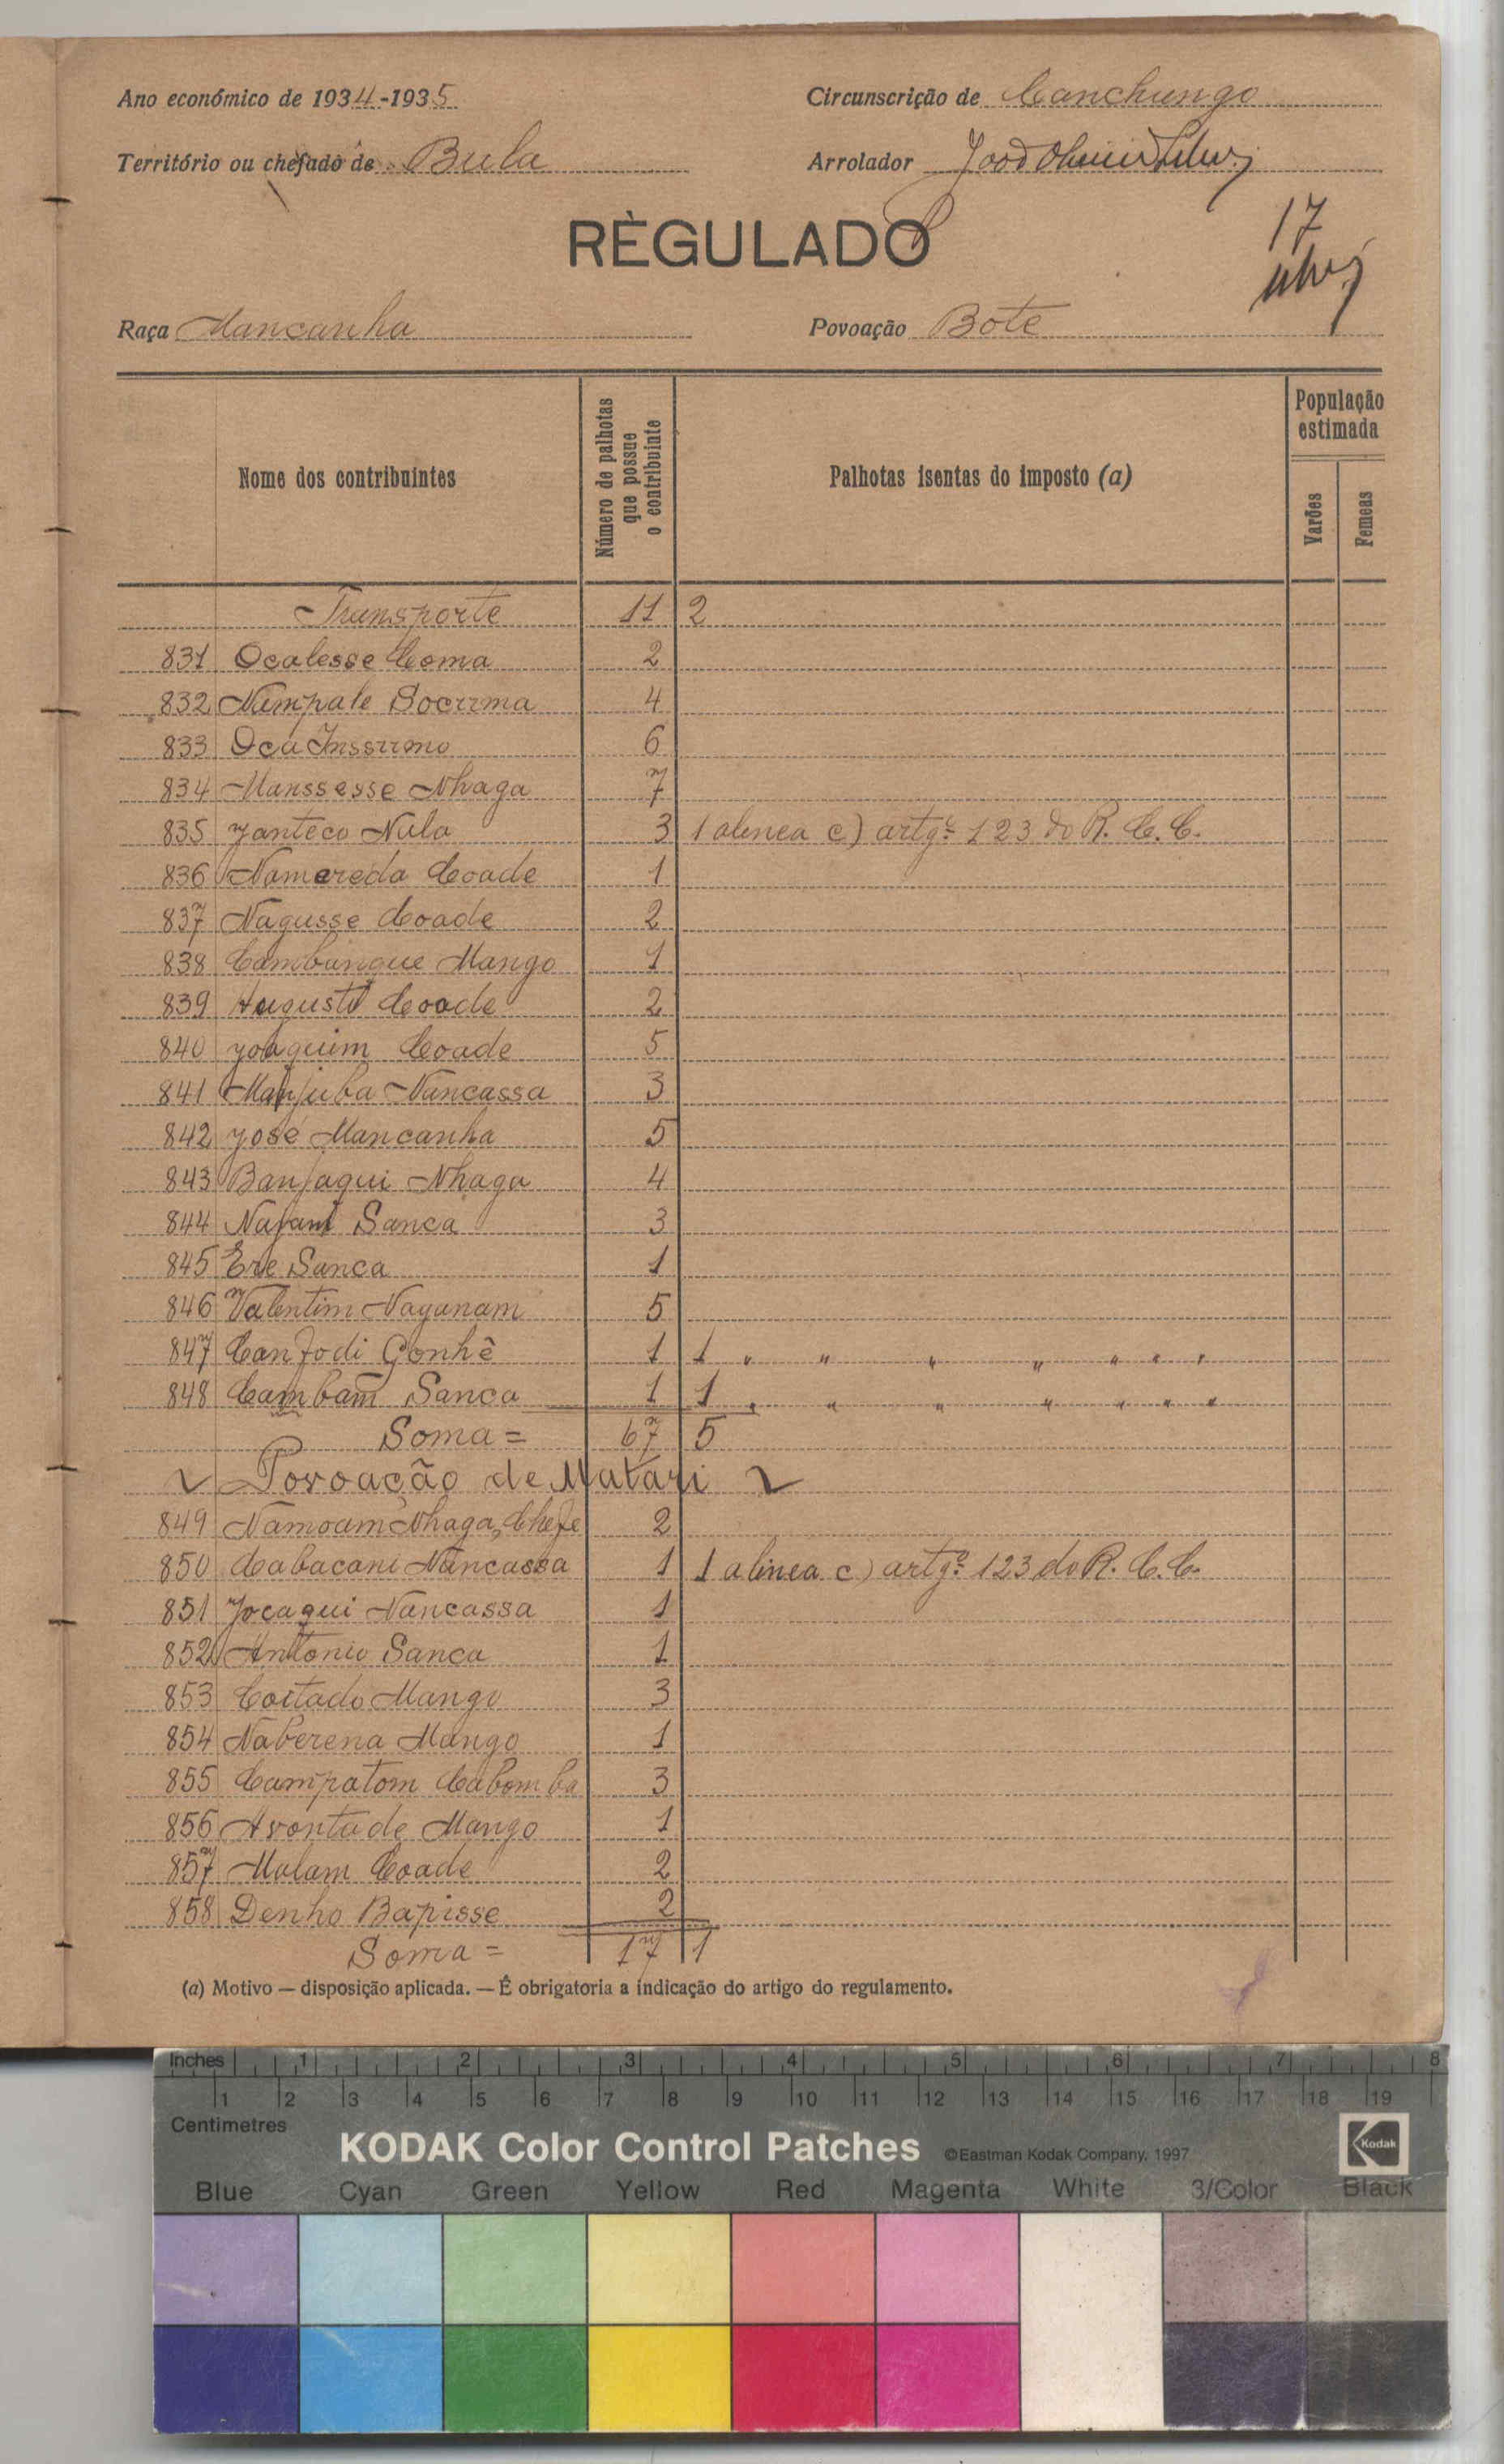 Ano económico de 1934-1935
Circunscrição de Canchungo
Território ou chefado de Bula
Arrolador
RÈGULADO
17
Raça Mancanha
Povoação Bote
Nome dos contribuintes
Número de palhotas que possue o contribuinte
Palhotas isentas do imposto (a)
População estimada
Varões
Femeas
Transporte 11 2
831 Ocalesse Coma 2
832 Nampale Documa 4
833 Oca Inssumo 6
834 Manssesse Nhaga 7
835 Janteco Nula 3 1 alinea c) artgº 123 do R. C. C.
836 Nomereda Coade 1
837 Nagusse Coade 2
838 Cambunque Mango 1
839 Augusto Coade 2
840 Joaquim Coade 5
841 Manjuba Nancassa 3
842 José Mancanha 5
843 Banjaqui Nhaga 4
844 Najant Sanca 3
845 Ere Sanca 1
846 Valentim Nayanam 5
847 Canfodi Gonhê 1 1 " " " " " " "
848 Cambam Sanca 1 1 " " " " " " "
Soma = 67 5
Povoação de Matari
849 Namoam Nhaga, Chefe 2
850 Cabacani Nancassa 1 1 alinea c) artgº 123 do R. C. C.
851 Jocaqui Nancassa 1
852 Antonio Sanca 1
853 Coitado Mango 3
854 Naberena Mango 1
855 Campatom Cabomba 3
856 Avontade Mango 1
857 Malam Coade 2
858 Denho Bapisse 2
Soma = 17 1
(a) Motivo — disposição aplicada. — É obrigatoria a indicação do artigo do regulamento.
Inches 1 2 3 4 5 6 7 8
1 2 3 4 5 6 7 8 9 10 11 12 13 14 15 16 17 18 19
Centimetres
KODAK Color Control Patches ©Eastman Kodak Company, 1997 Kodak
Blue Cyan Green Yellow Red Magenta White 3/Color Black